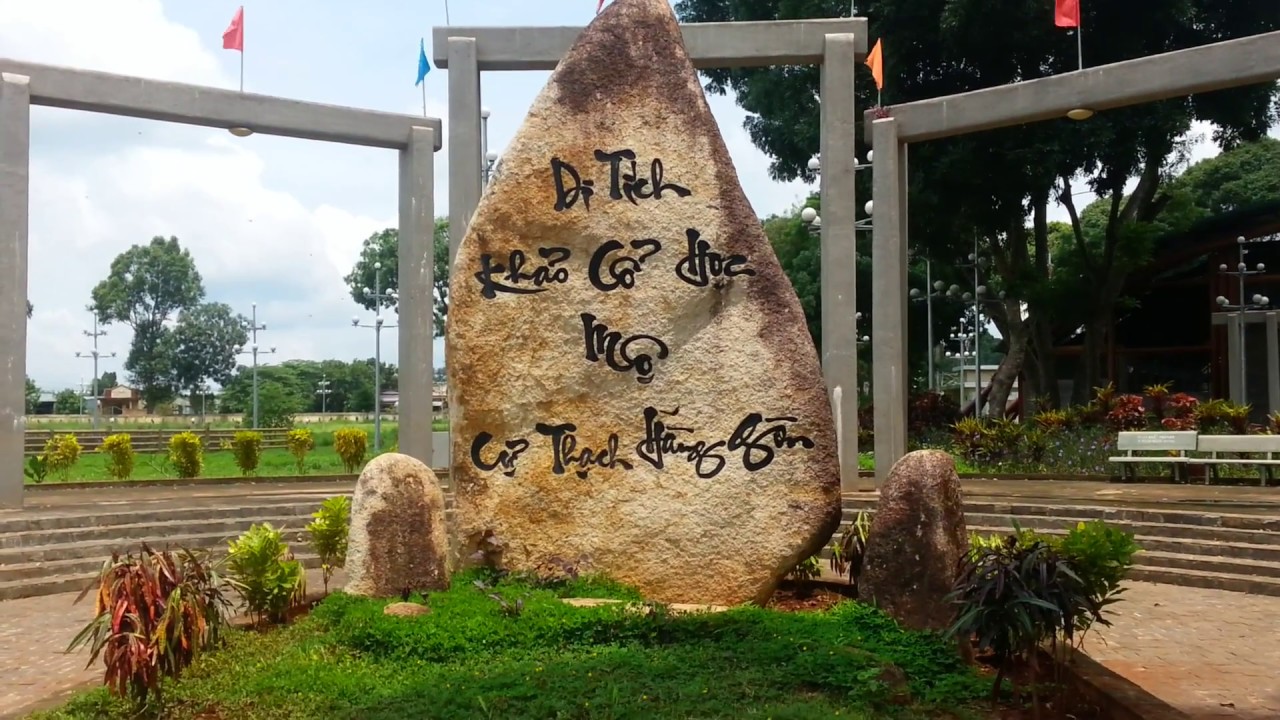 Di Tích
Khảo Cổ Học
Mộ
Cự Thạch Hàng Gòn